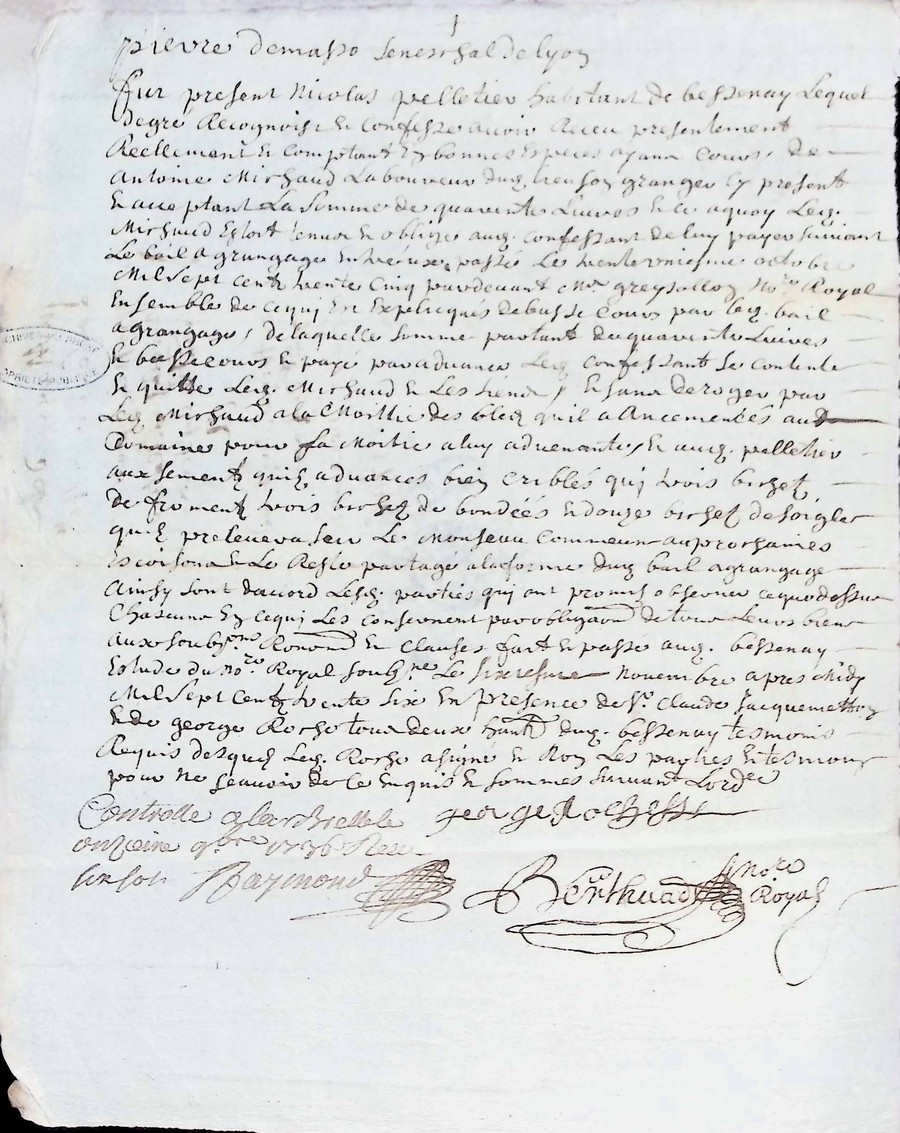 pierre demasso seneschal de lyon
fut present Nicolas pelletier habitant de bessenay Lequel
degré Recognoist Et Confesse avoir Receu presentement
Reellement Et Comptant En bonnes Especes ayans Cours, de
Antoine Michaud Laboureur dud. lieu son granger Cy present
Et acceptant La somme de quarante Livres Et Ce aquoy Led.
Michaud Estoit tenu Et obligé aud. Confessant de luy payer suivant
Le bail a grangage Entre eux passé Le trente uniesme octobre
Mil sept cent trente Cinq pardevant Me greysollon No.re Royal
Ensemble de Cequi Est Expliqués de basse Cours par led. bail
a grangage, de laquelle somme partant de quarante Livres
Et basse cours Et payé par advance Led. Confessant se Contente
Et quitte Led. Michaud Et Les siens, Et sans deroger par
Led. Michaud a la Moittié des bleds qu'il a Ancemencés aud.
Domaines pour sa Moitié a luy advenante, Et aud. pelletier
aux sements qu'il a advancés bien Criblés qui trois bichets
de froment trois bichets de bondées Et douze bichets de soigle
qu'il prelevera sur Le Monseau Commun au prochaines
Et Le Reste partagé a la forme dud. bail a grangage
Ainsy sont d'acord Lesd. parties qui ont promis observer cequedessus
Chascune En cequi Les Consernent par obligaon de tous Leurs biens
Aux soubmons Renonons Et Clauses fait Et passé aud. bessenay
Estude du No.re Royal soubne Le sixiesme Novembre apres Midy
Mil sept Cent trente six En presence de Sr. Claude Jacquemetton
Et de george Roche tous deux habts dud. bessenay tesmoins
Requis desquels Led. Roche a signé Et Non Les parties Et tesmoin
pour Ne sçavoir de Ce Enquis Et sommés suivant L'ordce
Controllé a larbresle le george Roche
onzieme 9bre 1736 Receu
six sols Raymond Berthuad No.re
Royal